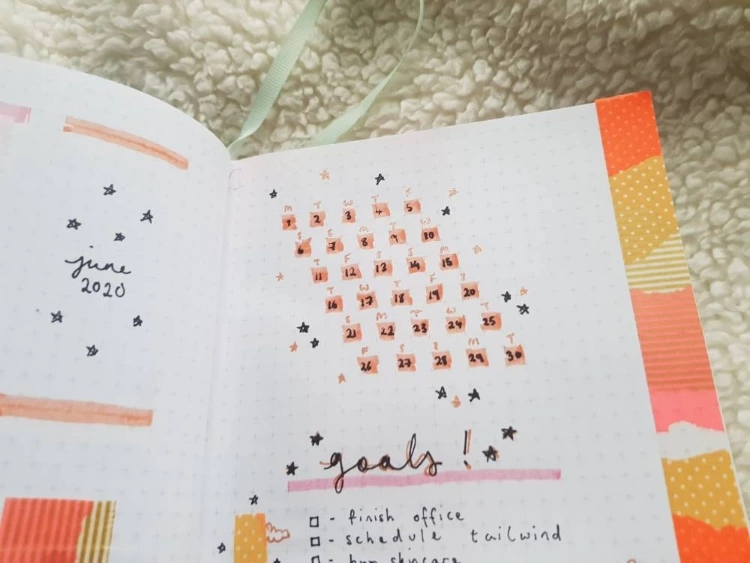 june
2020
M T W T F
1 2 3 4 5
S S M T W
6 7 8 9 10
T F S S M
11 12 13 14 15
T W T F S
16 17 18 19 20
S M T W T
21 22 23 24 25
F S S M T
26 27 28 29 30
goals!
- finish office
- schedule tailwind
- skincare